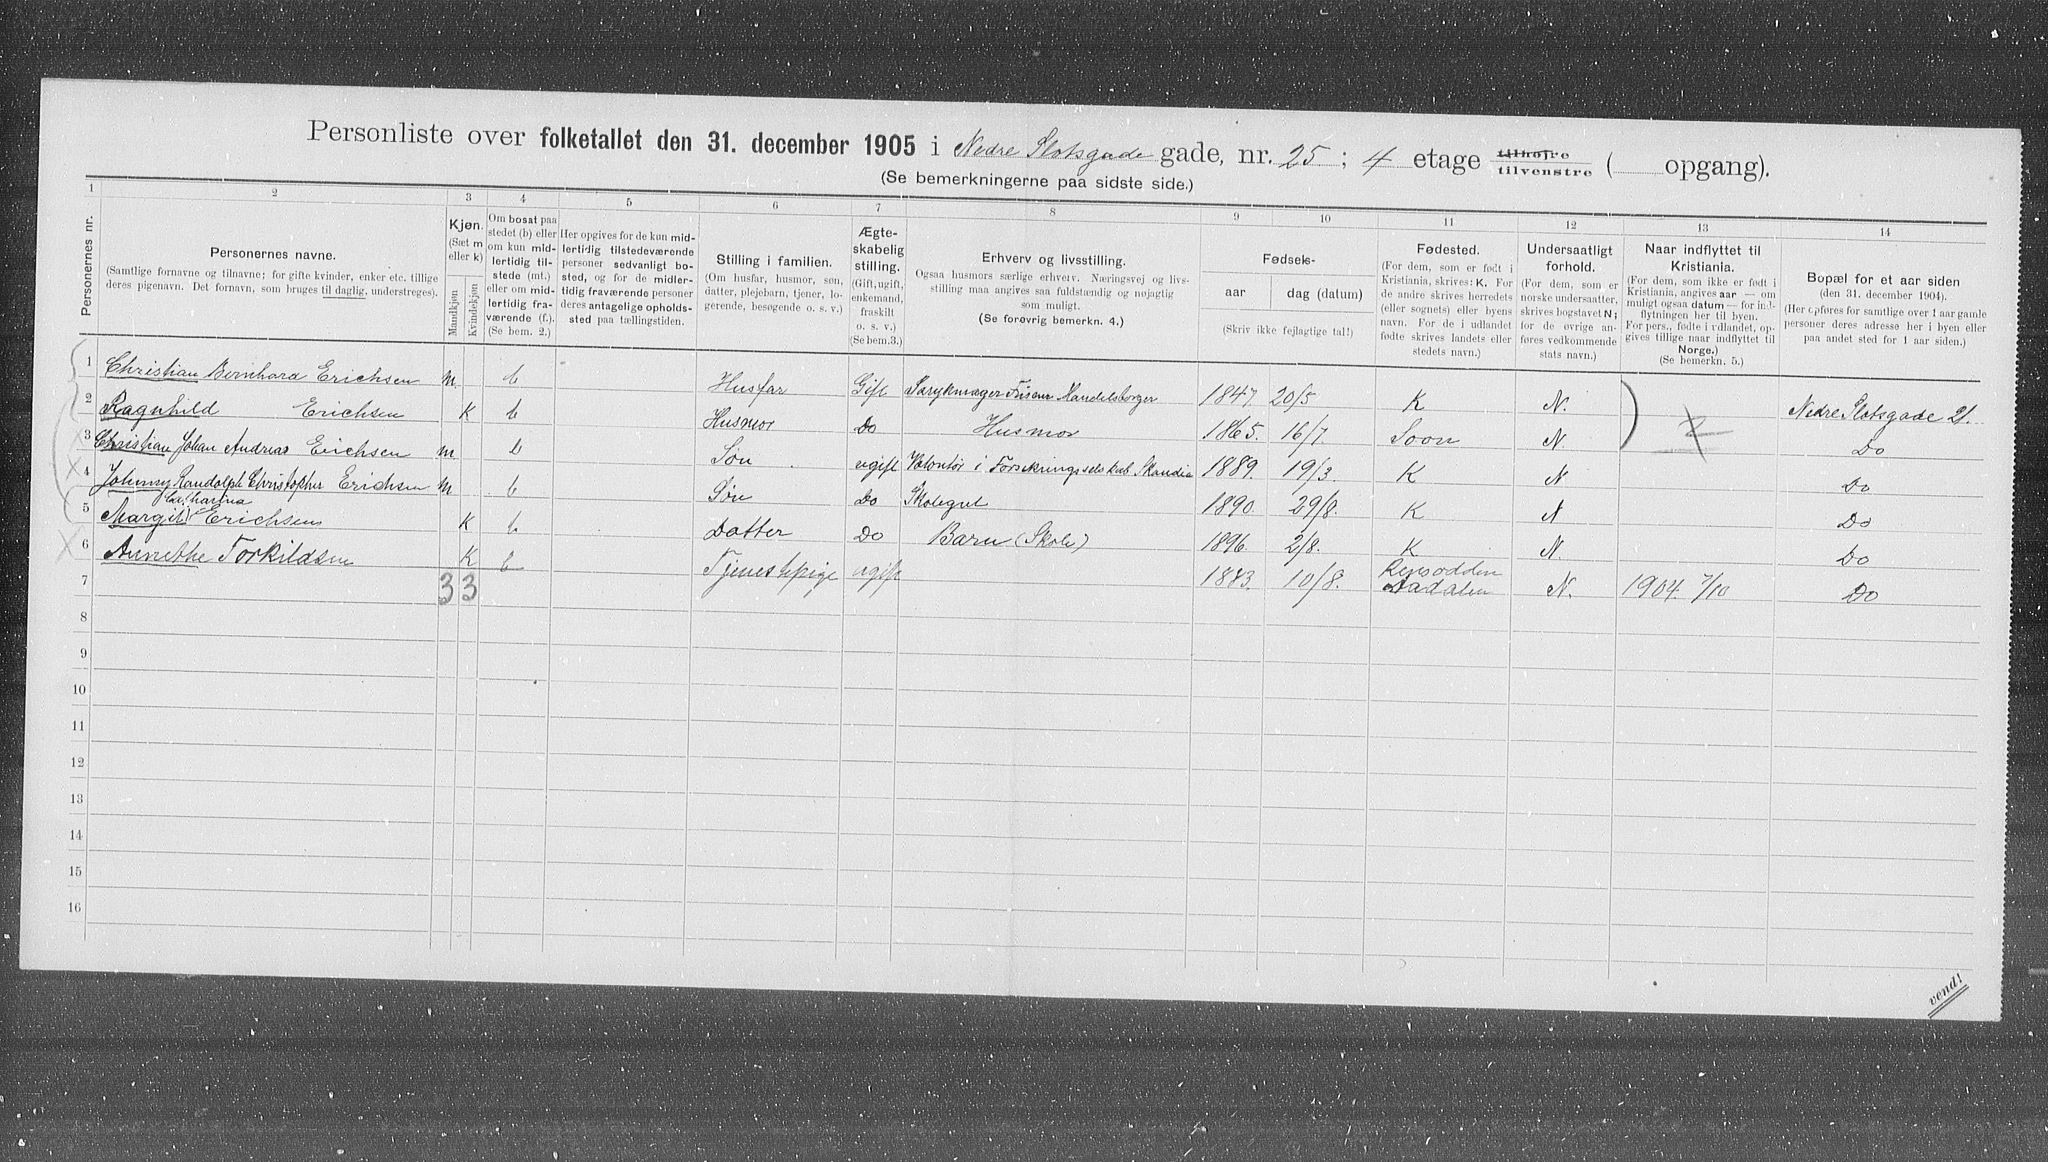 Personliste over folketallet den 31. december 1905 i Nedre Slotsgade gade, nr. 25 ; 4 etage tilhøjre tilvenstre ( opgang).
(Se bemerkningerne paa sidste side.)
1 2 3 4 5 6 7 8 9 10 11 12 13 14
Personernes nr.
Personernes navne.
(Samtlige fornavne og tilnavne; for gifte kvinder, enker etc. tillige
deres pigenavn. Det fornavn, som bruges til daglig, understreges).
Kjøn.
(Sæt m
eller k)
Mandkjøn
Kvindekjøn
Om bosat paa
stedet (b) eller
om kun mid-
lertidig til-
stede (mt.)
eller om mid-
lertidig fra-
værende (f.).
(Se bem. 2.)
Her opgives for de kun mid-
lertidig tilstedeværende
personer sedvanligt bo-
sted, og for de midler-
tidig fraværende personer
deres antagelige opholds-
sted paa tællingstiden.
Stilling i familien.
(Om husfar, husmor, søn,
datter, plejebarn, tjener, lo-
gerende, besøgende o. s. v.)
Ægte-
skabelig
stilling.
(Gift, ugift,
enkemand,
fraskilt
o. s. v.)
(Se bem. 3.)
Erhverv og livsstilling.
Ogsaa husmors særlige erhverv. Næringsvej og livs-
stilling maa angives saa fuldstændig og nøjagtig
som muligt.
(Se forøvrig bemerkn. 4.)
Fødsels-
aar
dag (datum)
(Skriv ikke fejlagtige tal!)
Fødested.
(For dem, som er født i
Kristiania, skrives: K. For
de andre skrives herredets
(eller sognets) eller byens
navn. For de i udlandet
fødte skrives landets eller
stedets navn.)
Undersaatligt
forhold.
(For dem, som er
norske undersaatter,
skrives bogstavet N;
for de øvrige an-
føres vedkommende
stats navn.)
Naar indflyttet til
Kristiania.
(For dem, som ikke er født i
Kristiania, angives aar — om
muligt ogsaa datum — for ind-
flytningen her til byen.
For pers., født i udlandet, op-
gives tillige naar indflyttet til
Norge.)
(Se bemerkn. 5.)
Bopæl for et aar siden
(den 31. december 1904).
(Her opføres for samtlige over 1 aar gamle
personer deres adresse her i byen eller
paa andet sted for 1 aar siden.)
1 Christian Bernhard Erichsen m. b Husfar Gift Handelsborger 1847 20/5 K N. Nedre Slotsgade 21.
2 Ragnhild Erichsen K b Husmor Do Husmor 1865. 16/7 Soon N Do
3 Christian Johan Andreas Erichsen m. b Søn ugift Volontør i Forsikringsselskab Skandia 1889. 19/3 K N Do
4 Johnny Randolph Christopher Erichsen m b Søn Do Skolegut 1890. 29/8. K N Do
Catharina
5 Margit Erichsen K b Datter Do Barn (Skole) 1896. 2/8. K N Do
6 Annethe Torkildsen K b Tjenestepige ugift 1883. 10/8. Aadalen N. 1904 7/10 Do
7 3 3
8
9
10
11
12
13
14
15
16
vend!